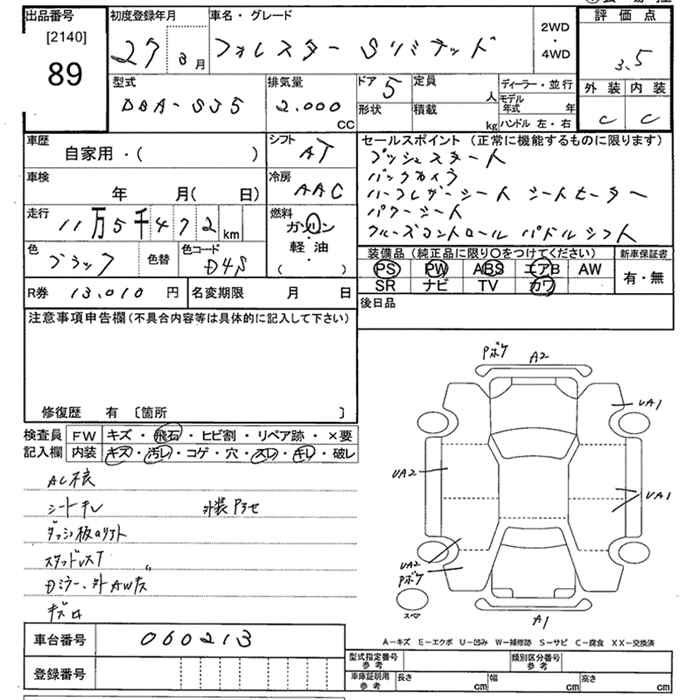 出品番号
[2140]
89
初度登録年月
27 8月
車名・グレード
フォレスター Sリミテッド
2WD
・
4WD
評価点
3.5
外装 内装
C C
型式
DBA-SJ5
排気量
2.000 CC
ドア 5
定員 人
形状
積載 kg
ディーラー・並行
モデル年式 年
ハンドル 左・右
車歴
自家用・( )
シフト
AT
車検
年 月( 日)
冷房
AAC
走行
11万5千472 km
燃料
ガソリン
・
軽・油
( )
色
ブラック
色替
色コード
D4S
R券 13,010 円
名変期限 月 日
セールスポイント(正常に機能するものに限ります)
プッシュスタート
バックカメラ
ハーフレザーシート シートヒーター
パワーシート
クルーズコントロール パドルシフト
装備品(純正品に限り○をつけてください)
PS PW ABS エアB AW
SR ナビ TV カワ
新車保証書
有・無
後日品
注意事項申告欄(不具合内容等は具体的に記入して下さい)
修復歴 有 〔箇所 〕
検査員記入欄
FW キズ・飛石・ヒビ割・リペア跡・×要
内装 キズ・汚レ・コゲ・穴・スレ・キレ・破レ
シートキレ
Pボケ
A2
UA1
UA2
UA1
UA2
Pボケ
A1
スペア
A-キズ E-エクボ U-凹み W-補修跡 S-サビ C-腐食 XX-交換済
車台番号 060213
登録番号
型式指定番号 参考
類別区分番号 参考
車庫証明用 参考
長さ cm
幅 cm
高さ cm